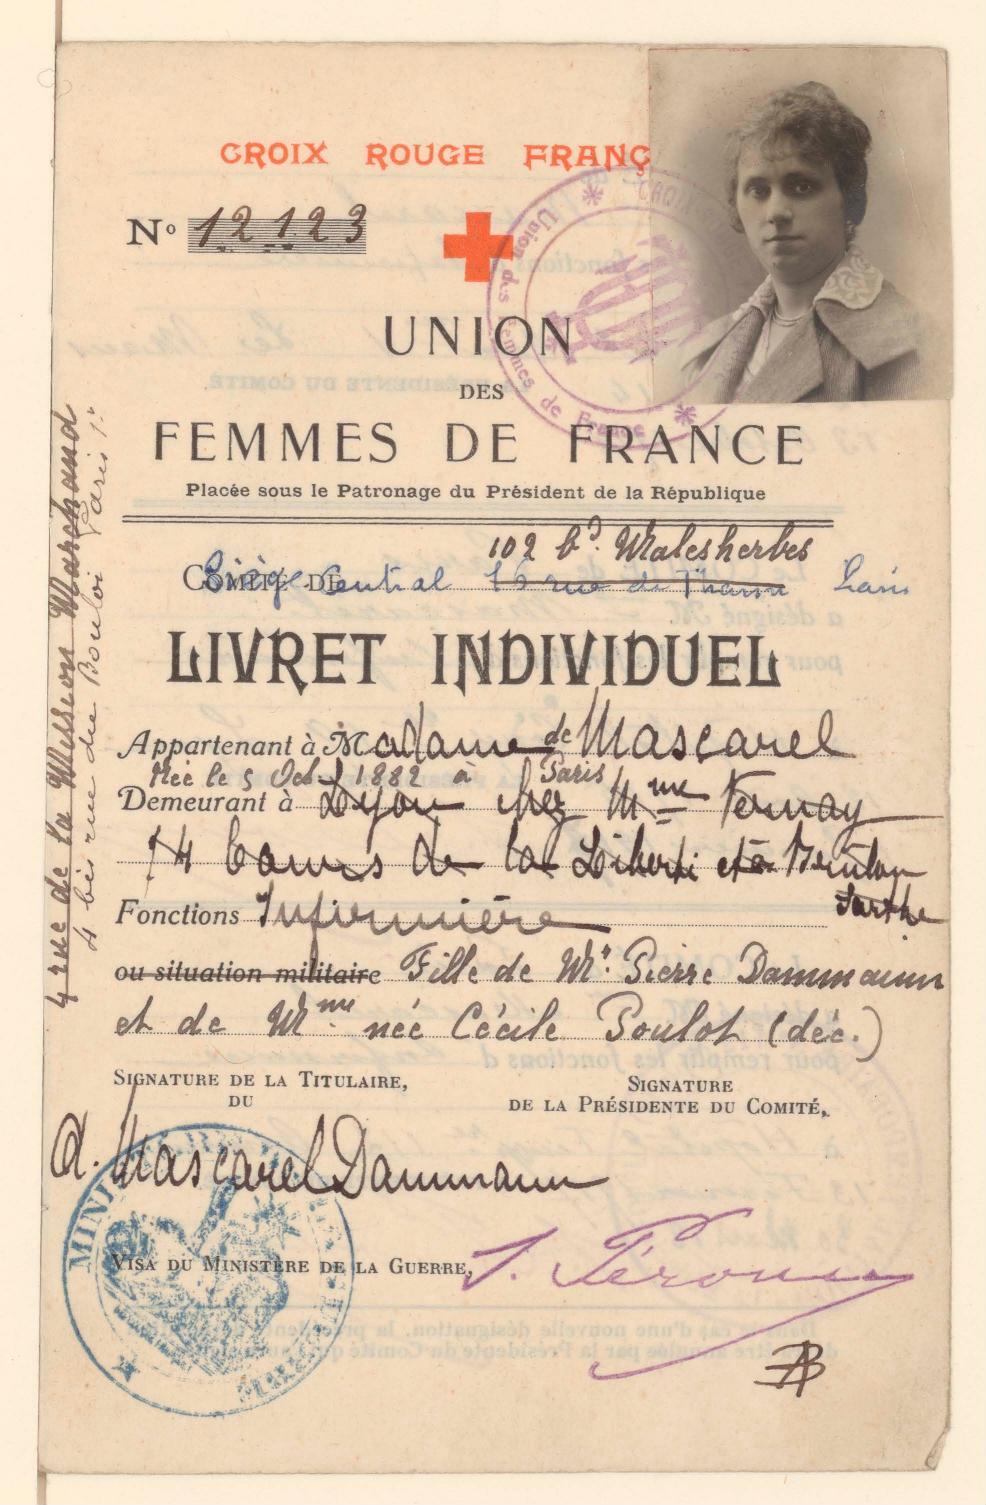 CROIX ROUGE FRANÇ
No 12.123
UNION
DES
FEMMES DE FRANCE
Placée sous le Patronage du Président de la République
102 bd. Malesherbes
COMITÉ DE Siège Central 16 rue de Thann Paris
LIVRET INDIVIDUEL
Appartenant à Madame de Mascarel
Née le 5 Oct. 1882 à Paris
Demeurant à Lyon chez Mme Fernay
14 Cours de la Liberté et à
Sarthe
Fonctions Infirmière
ou situation militaire Fille de Mr. Pierre Dammann
et de Mme. née Cécile Poulot (déc.)
SIGNATURE DE LA TITULAIRE,
DU
SIGNATURE
DE LA PRÉSIDENTE DU COMITÉ,
A. Mascarel Dammann
VISA DU MINISTÈRE DE LA GUERRE,
4 rue de la Mission Marchand
4 bis rue du Bouloi Paris 1er
Union des Femmes de France